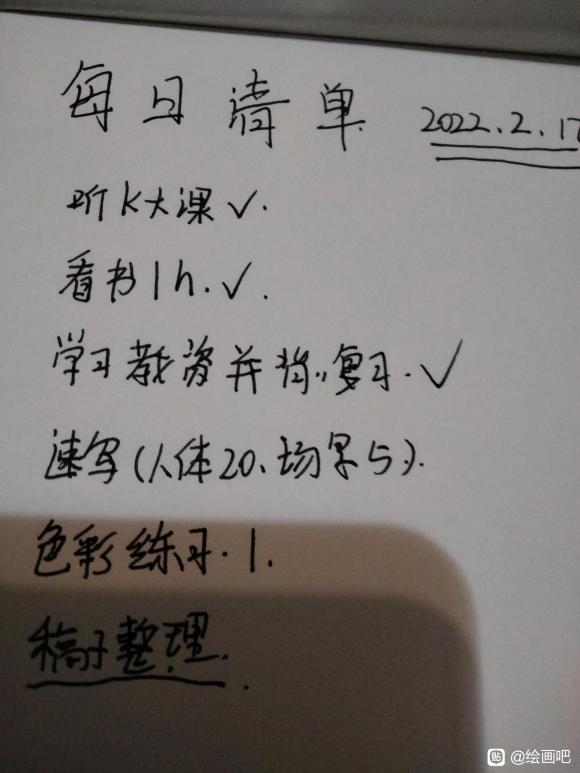 每日清单 2022.2.17
听K大课✓.
看书1h.✓.
学习教资并背,,复习.✓
速写(人体20、场景5).
色彩练习.1.
稿子整理.
贴 @绘画吧